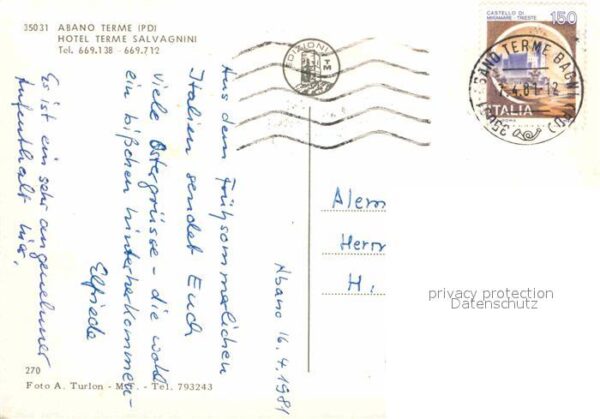 35031 ABANO TERME (PD)
HOTEL TERME SALVAGNINI
Tel. 669.138 - 669.712
EDIZIONI
TM
CASTELLO DI
MIRAMARE - TRIESTE
150
ITALIA
ABANO TERME BAGNI (PD)
.4.81-12
35031
Abano 16.4.1981
Aus dem frühsommerlichen
Italien sendet Euch
viele Ostergrüsse - die wohl
ein bißchen hinterherkommen -
Elfriede
Es ist ein sehr angenehmer
Aufenthalt hier.
Alem
Herrn
H.
privacy protection
Datenschutz
270
Foto A. Turlon - M.T. - Tel. 793243